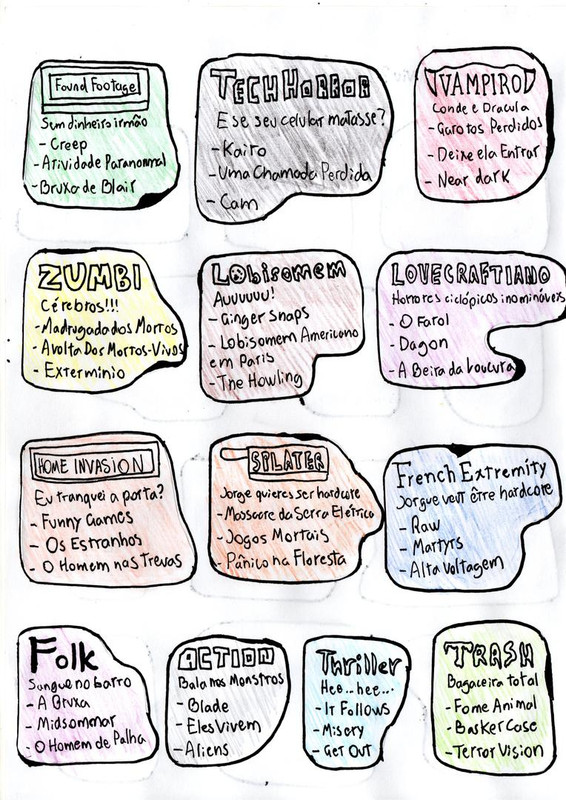 Found Footage
Sem dinheiro irmão
- Creep
- Atividade Paranormal
- Bruxa de Blair
TECH HORROR
E se seu celular matasse?
- Kairo
- Uma Chamada Perdida
- Cam
VAMPIRO
Conde e Dracula
- Garotos Perdidos
- Deixe ela Entrar
- Near dark
ZUMBI
Cérebros!!!
- Madrugada dos Mortos
- A volta Dos Mortos-Vivos
- Extermínio
Lobisomem
Auuuuuu!
- Ginger Snaps
- Lobisomem Americano
em Paris
- The Howling
LOVECRAFTIANO
Horrores ciclópicos inomináveis
- O Farol
- Dagon
- A Beira da Loucura
HOME INVASION
Eu tranquei a porta?
- Funny Games
- Os Estranhos
- O Homem nas Trevas
SPLATER
Jorge quieres ser hardcore
- Massacre da Serra Elétrica
- Jogos Mortais
- Pânico na Floresta
French Extremity
Jorgue veut être hardcore
- Raw
- Martyrs
- Alta Voltagem
Folk
Sangue no barro
- A Bruxa
- Midsommar
- O Homem de Palha
ACTION
Bala nos Monstros
- Blade
- Eles Vivem
- Aliens
Thriller
Hee..hee...
- It Follows
- Misery
- Get Out
TRASH
Bagaceira total
- Fome Animal
- Basker Case
- Terror Vision